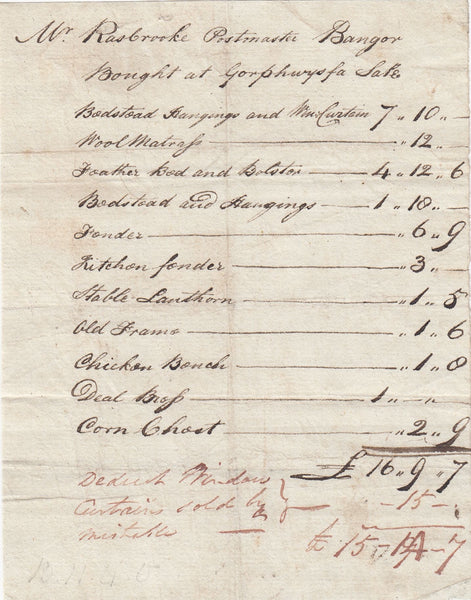 Mr Rasbrooke Postmaster Bangor
Bought at Gorphwysfa Sale
Bedstead Hangings and Win Curtain 7 " 10 " —
Wool Matrass — " 12 " —
Feather bed and Bolster — 4 " 12 " 6
Bedstead and Hangings — 1 " 18 " —
Fender — " 6 " 9
Kitchen fender — " 3 " —
Stable Lanthorn — " 1 " 5
Old Frame — " 1 " 6
Chicken Bench — " 1 " 8
Deal Press — 1 " — " —
Corn Chest — " 2 " 9
£ 16 " 9 " 7
Deduct Window
Curtains sold by — " 15 —
mistake — £ 15 - 14 - 7